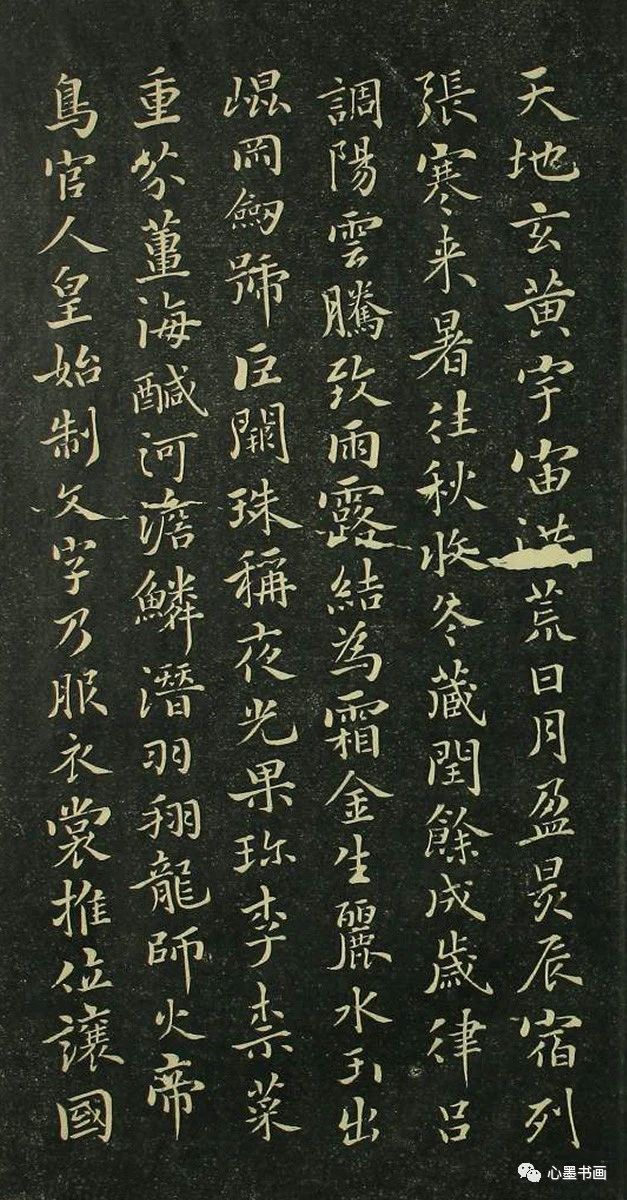 天地玄黄宇宙洪荒日月盈昃辰宿列
張寒来暑往秋收冬藏閏餘成歲律吕
調陽雲騰致雨露結為霜金生麗水玉出
崐岡劒號巨闕珠稱夜光果珎李柰菜
重芥薑海醎河淡鱗潛羽翔龍師火帝
鳥官人皇始制文字乃服衣裳推位讓國
心墨书画